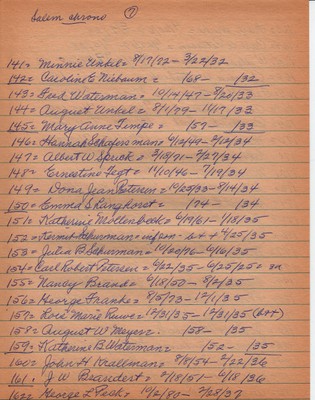 Salem chrono 7
141= Minnie Unkel = 8/17/72 - 3/22/32
142= Caroline E Niebaum = /68 - /32
143= Fred Waterman = 10/14/47 - 8/20/33
144= August Unkel = 8/1/79 - 1/17/33
145= Mary Anne Timpe = 157 - /33
146= Hannah Schafersman = 6/12/49 - 2/12/34
147= Albert W Spuck = 3/19/71 - 2/27/34
148= Ernestine Segt = 11/10/46 - 7/19/34
149= Dona Jean Petersen = 10/25/33 - 9/14/34
150= Emma S Ringhorst = 194 - 134
151= Katherine Mollenbeck = 6/19/61 - 1/18/35
152= Kermit Schurman = infson - b + t 4/25/35
153= Julia B Schurman = 10/20/96 - 6/16/35
154= Carl Robert Petersen = 6/22/35 - 6/25/35 =
155= Nancy Brand = 6/18/50 - 8/2/35
156= George Franke = 8/5/73 - 12/1/35
157= Rose Marie Ruwe = 12/31/35 - 12/31/35 (b+t)
158= August W Meyer. 158 - 135
159= Katherine B Waterman = 152 - 135
160= John H Krallman = 9/8/54 - 2/22/36
161. J W Brandert = 2/18/51 - 6/18/36
162= George L Peck = 10/2/80 - 7/28/37